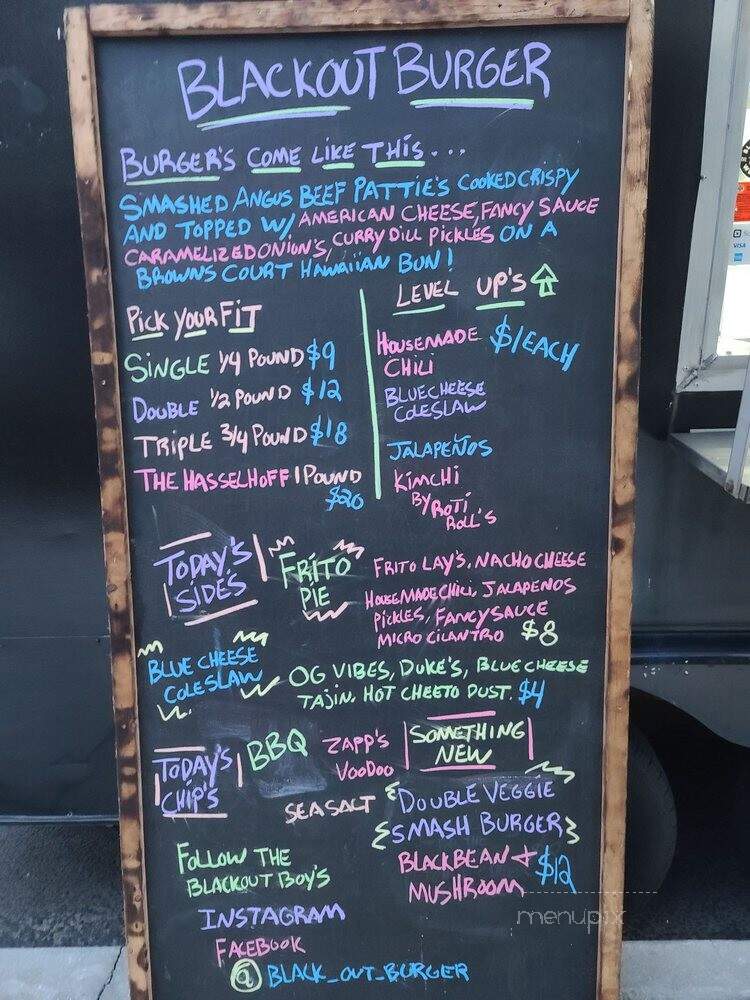 BLACKOUT BURGER
BURGER'S COME LIKE THIS...
SMASHED ANGUS BEEF PATTIE'S COOKED CRISPY
AND TOPPED W/ AMERICAN CHEESE, FANCY SAUCE
CARAMELIZED ONION'S, CURRY DILL PICKLES ON A
BROWNS COURT HAWAIIAN BUN!
PICK YOUR FIT
SINGLE 1/4 POUND $9
DOUBLE 1/2 POUND $12
TRIPLE 3/4 POUND $18
THE HASSELHOFF 1 POUND
$20
LEVEL UP'S
HOUSEMADE $1/EACH
CHILI
BLUE CHEESE
COLESLAW
JALAPEÑOS
KIMCHI
BY ROTI
ROLL'S
TODAY'S
SIDE'S
FRITO
PIE
FRITO LAY'S, NACHO CHEESE
HOUSEMADE CHILI, JALAPENOS
PICKLES, FANCY SAUCE
MICRO CILANTRO $8
BLUE CHEESE
COLESLAW
OG VIBES, DUKE'S, BLUE CHEESE
TAJIN, HOT CHEETO DUST. $4
TODAY'S
CHIP'S
BBQ
ZAPP'S
VOODOO
SEA SALT
SOMETHING
NEW
DOUBLE VEGGIE
SMASH BURGER
BLACKBEAN + $12
MUSHROOM
FOLLOW THE
BLACKOUT BOY'S
INSTAGRAM
FACEBOOK
@ BLACK_OUT_BURGER
menupix
VISA